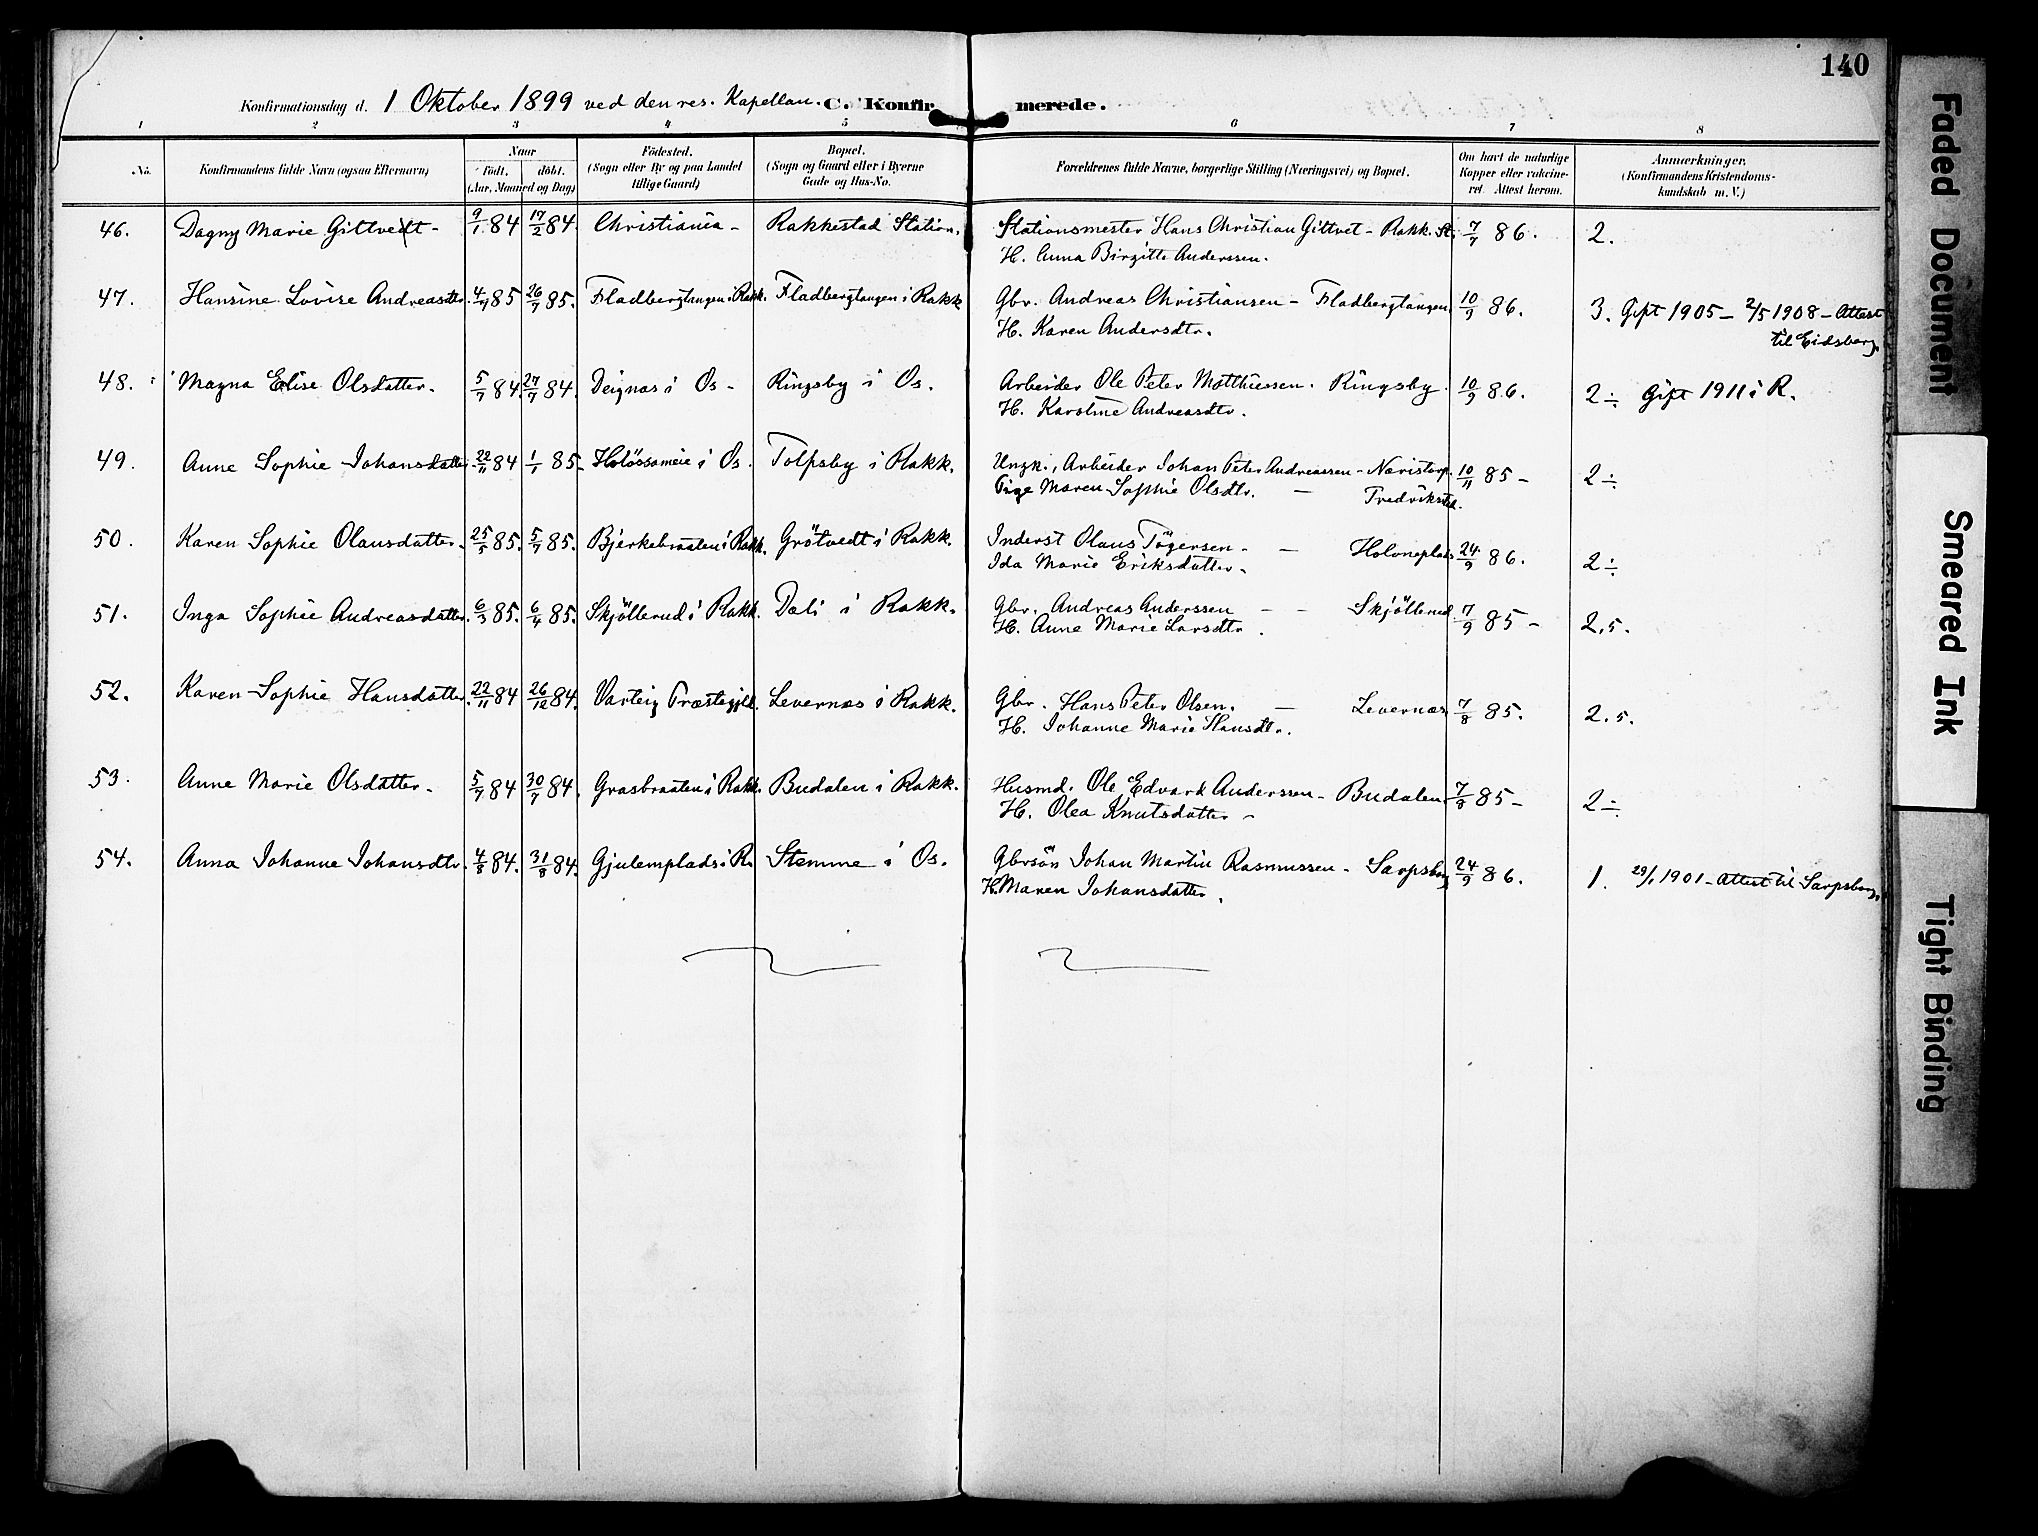 140
Konfirmationsdag d. 1 Oktober 1899 ved den res. Kapellan. C. Konfirmerede.
1 2 3 4 5 6 7 8
No.
Konfirmandens fulde Navn (ogsaa Efternavn)
Naar
født. døbt.
(Aar, Maaned og Dag)
Fødested.
(Sogn eller By og paa Landet
tillige Gaard)
Bopæl.
(Sogn og Gaard eller i Byerne
Gade og Hus-No.
Forældrenes fulde Navne, borgerlige Stilling (Næringsvei) og Bopæl.
Om havt de naturlige
Kopper eller vaccine-
ret. Attest herom.
Anmærkninger.
(Konfirmandens Kristendoms-
kundskab m. V.)
46. Dagny Marie Gittvedt - 9/1 84 17/2 84. Christiania - Rakkestad Station. Stationsmester Hans Christian Gittvet - Rakk. St. 7/7 86. 2.
H. Anna Birgitte Anderssen.
47. Hansine Lovise Andreasdtr. 4/4 85 26/7 85. Fladbergtangen i Rakk. Fladbergtangen i Rakk Gbr. Andreas Christiansen - Fladbergtangen. 10/9 86. 3. Gift 1905 - 2/5 1908 - Attest
H. Karen Andersdtr. til Eidsberg.
48. Magna Elise Olsdatter. 5/7 84. 27/7 84. Deignæs i Os - Ringsby i Os. Arbeider Ole Peter Matthiessen. Ringsby. 10/9 86. 2 ÷ Gift 1911 i R.
H. Karoline Andreasdtr.
49. Anne Sophie Johansdatter 22/11 84 1/1 85 - Holössameie i Os. Tolpsby i Rakk. Ungk., Arbeider Johan Peter Andreassen - Næristorp. 10/11 85 - 2 ÷
Pige Maren Sophie Olsdtr. — Fredrikstad.
50. Karen Sophie Olausdatter. 25/5 85. 5/7 85. Bjerkebraaten i Rakk. Grötvedt i Rakk. Inderst Olaus Tögersen. — Holoneplads 24/9 86. 2 ÷
Ida Marie Eriksdatter.
51. Inga Sophie Andreasdatter. 6/3 85. 6/4 85. Skjöllerud i Rakk. Dæli i Rakk. Gbr. Andreas Anderssen - - Skjöllerud. 7/9 85 - 2,5.
H. Anne Marie Larsdtr.
52. Karen Sophie Hansdatter. 22/11 84 26/12 84. Varteig Præstegjeld. Levernæs i Rakk. Gbr. Hans Peter Olsen. — Levernæs 7/8 85. 2.5.
H. Johanne Marie Hansdtr.
53. Anne Marie Olsdatter. 5/7 84 30/7 84. Græsbraaten i Rakk. Budalen i Rakk. Husmd. Ole Edvard Anderssen - Budalen. 7/8 85 - 2 ÷
H. Olea Knutsdatter -
54. Anna Johanne Johansdtr. 4/8 84. 31/8 84. Gjulemplads i R. Stemme i Os. Gbrsön Johan Martin Rasmussen - Sarpsborg 24/9 86. 1. 29/1 1901 - Attest til Sarpsborg.
H. Maren Johansdatter.
Faded Document
Smeared Ink
Tight Binding